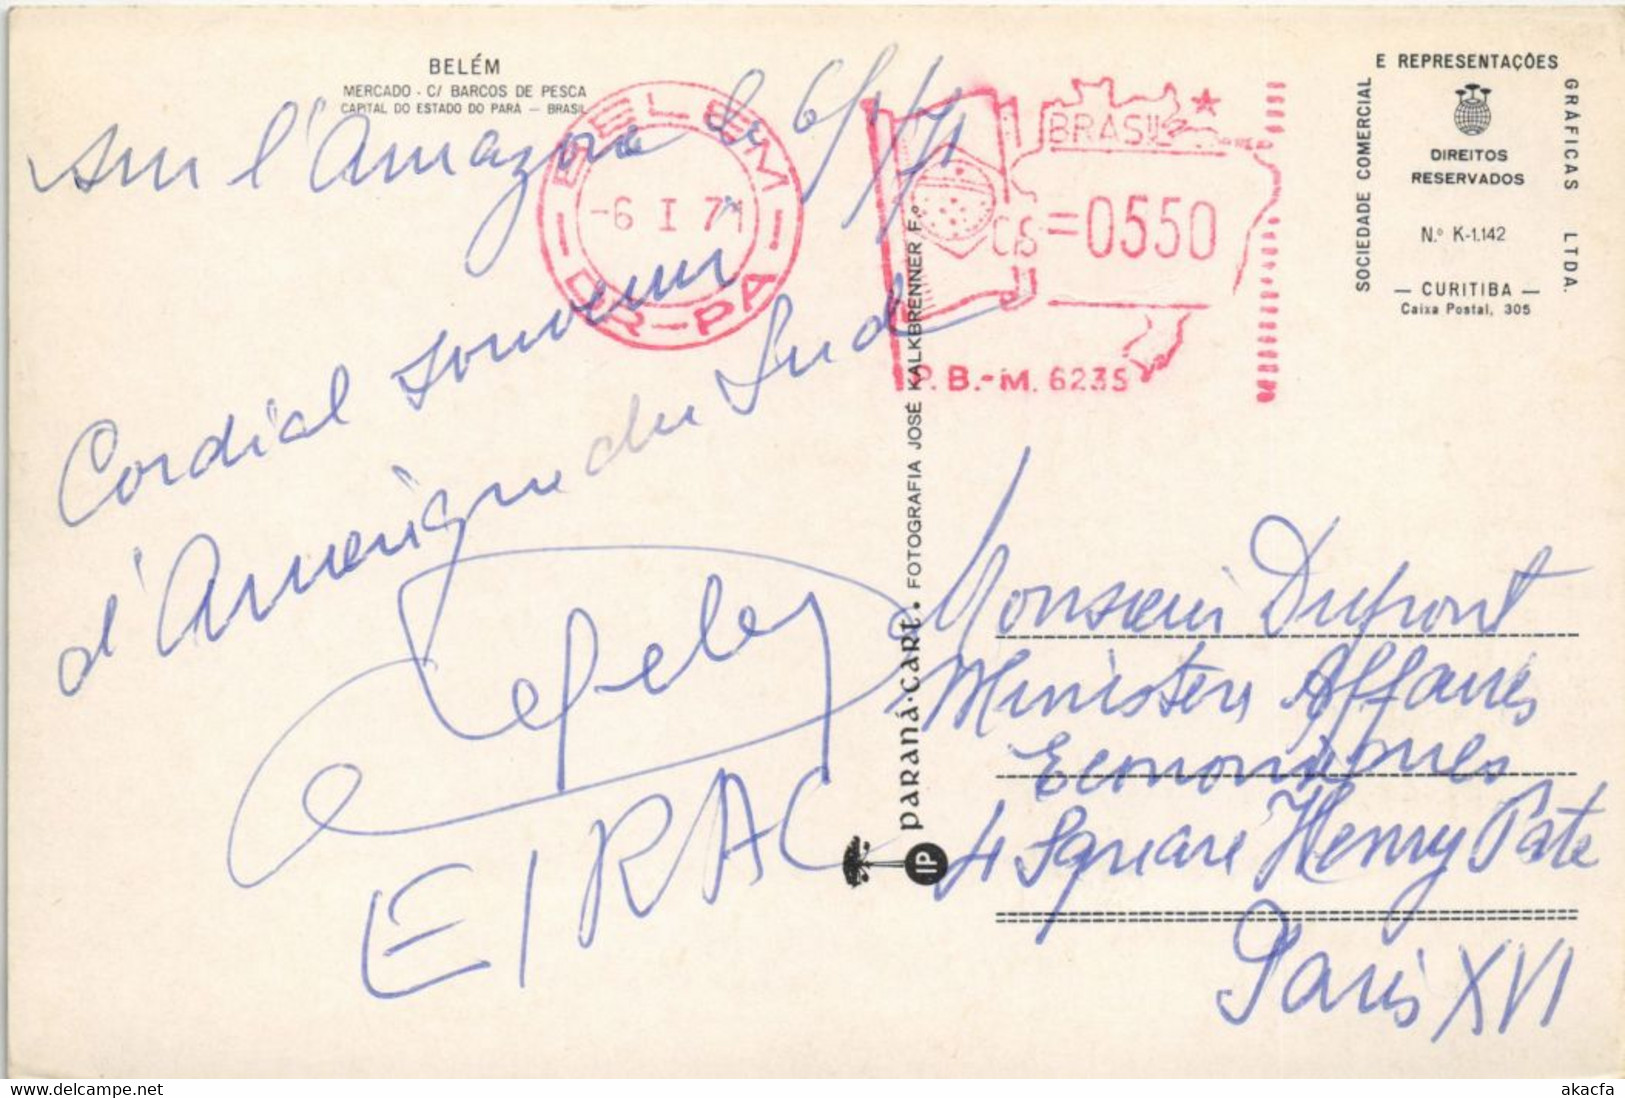 BELÉM
MERCADO - C/ BARCOS DE PESCA
CAPITAL DO ESTADO DO PARÁ — BRASIL
sur l'Amazone le 6/1/71
Cordial souvenir
d'Amérique du Sud
EIRAC
BELEM
-6 I 71
DR-PA
BRASIL
Cr$=0550
P.B.-M. 6235
SOCIEDADE COMERCIAL
E REPRESENTAÇÕES
GRÁFICAS LTDA.
DIREITOS
RESERVADOS
N.º K-1.142
— CURITIBA —
Caixa Postal, 305
PARANÁ-CART. FOTOGRAFIA JOSÉ KALKBRENNER F.º
IP
Monsieur Dupont
Ministère Affaires
Economiques
4 Square Henry Pate
Paris XVI
www.delcampe.net
akacfa